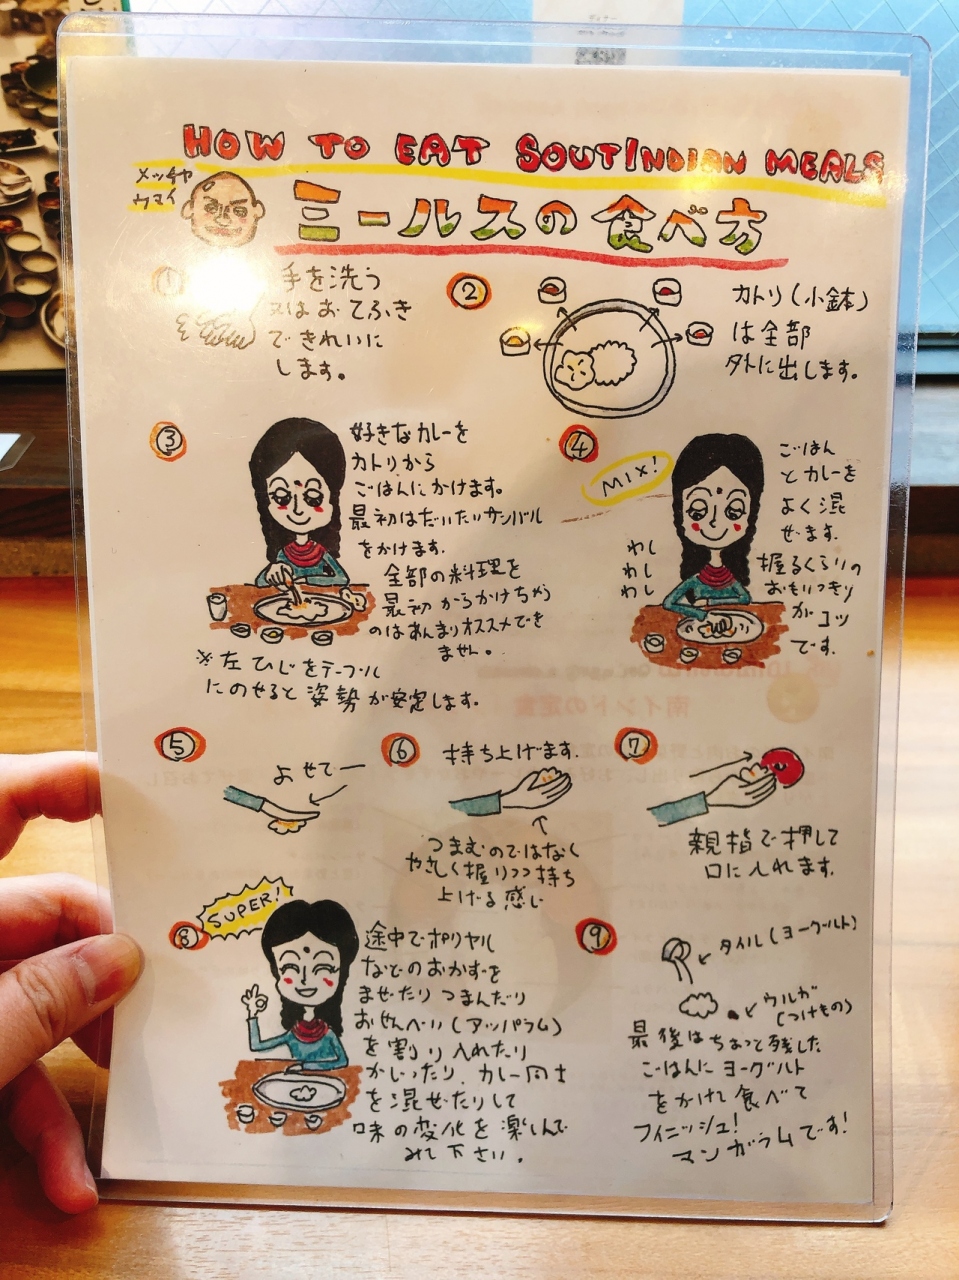 HOW TO EAT SOUTINDIAN MEALS
メッチャ
ウマイ
ミールスの食べ方
①
手を洗う
又はおてふき
できれいに
します。
②
カトリ(小鉢)
は全部
外に出します。
③
好きなカレーを
カトリから
ごはんにかけます。
最初はだいたいサンバル
をかけます.
全部の料理を
最初からかけちゃう
のはあんまりオススメでき
ません。
※左ひじをテーブル
にのせると姿勢が安定します。
④
MIX!
ごはん
とカレーを
よく混
ぜます.
握るくらいの
おもいっきり
がコツ
です.
わし
わし
わし
⑤
よせてー
⑥
持ち上げます.
つまむのではなく
やさしく握りつつ持ち
上げる感じ
⑦
親指で押して
口に入れます.
⑧
SUPER!
途中でポリヤル
などのおかずを
まぜたりつまんだり
おせんべい(アッパラム)
を割り入れたり
かじったり.カレー同士
を混ぜたりして
味の変化を楽しんで
みて下さい.
⑨
タイル(ヨーグルト)
ウルガ
(つけもの)
最後はちょっと残した
ごはんにヨーグルト
をかけて食べて
フィニッシュ!
マンガラムです!
南インドの定食